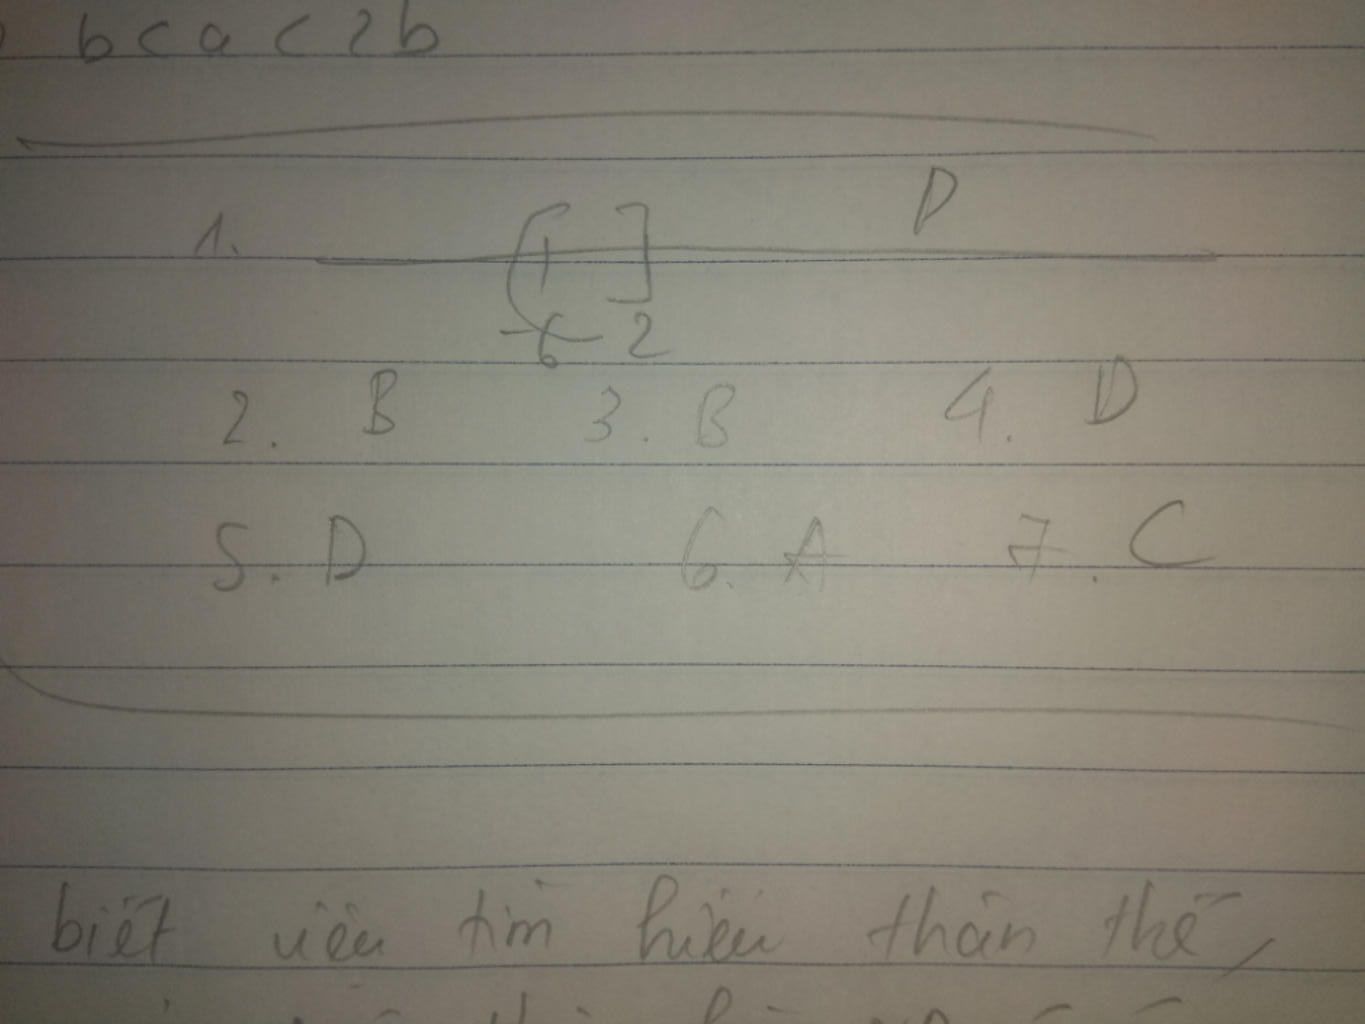 b < a < 2b
1. [ ] D
-6 2
2. B 3. B 4. D
5. D 6. A 7. C
biết tìm hiểu thân thế,